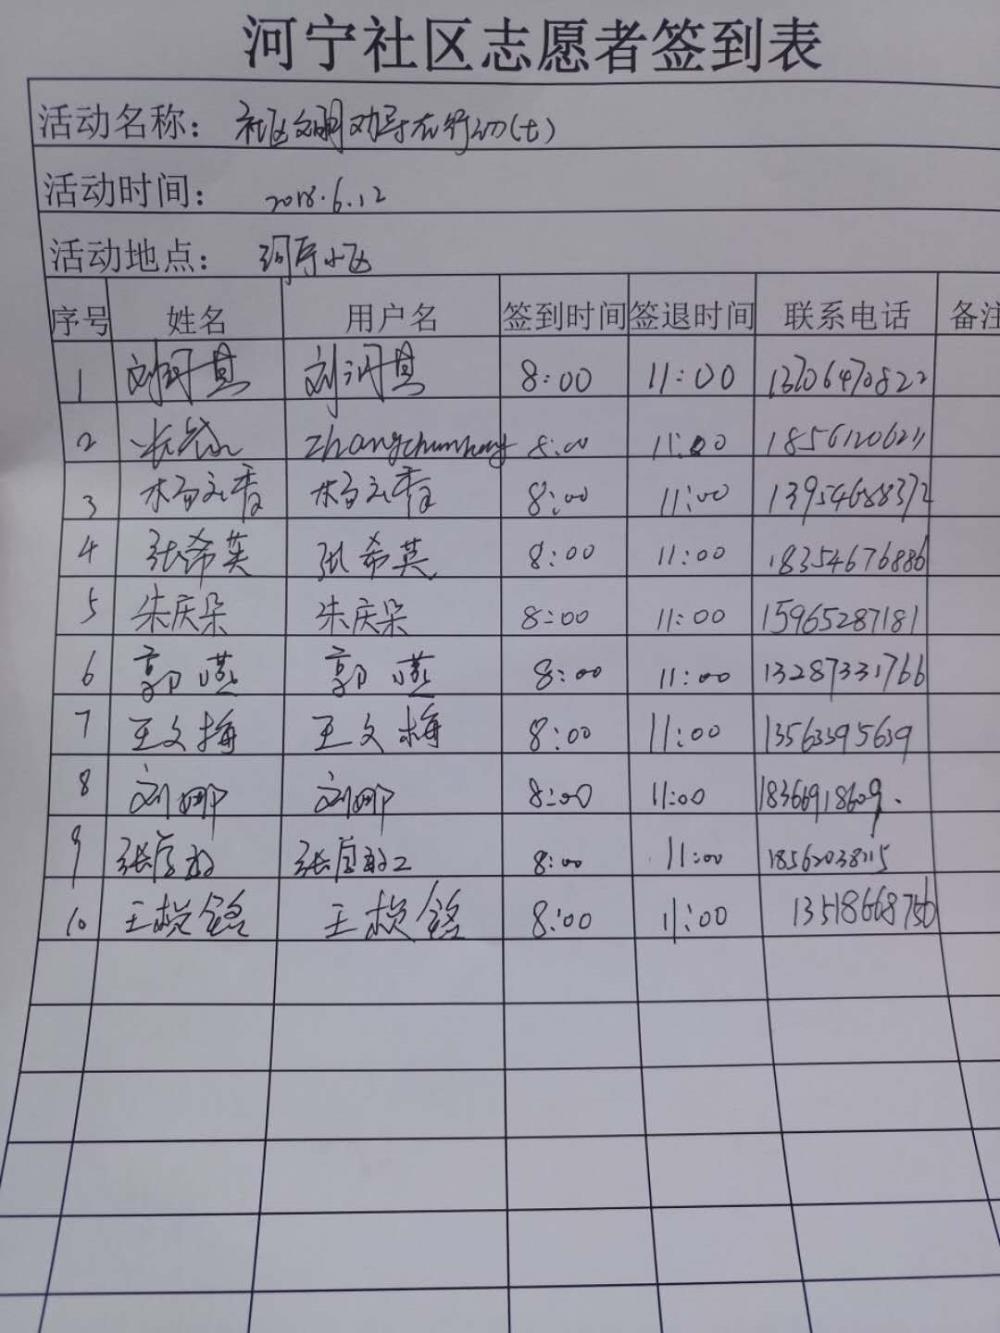 河宁社区志愿者签到表
活动名称: 社区文明劝导在行动(七)
活动时间: 2018.6.12
活动地点: 河宁小区
序号 姓名 用户名 签到时间 签退时间 联系电话 备注
1 刘 8:00 11:00 13706470822
2 zhangchunhong 8:00 11:00
3 杨元香 杨元香 8:00 11:00 13954688372
4 张希英 张希英 8:00 11:00 18354676886
5 朱庆朵 朱庆朵 8:00 11:00 15965287181
6 郭燕 郭燕 8:00 11:00 13287331766
7 王文梅 王文梅 8:00 11:00 13563395639
8 刘娜 刘娜 8:00 11:00 18366918609.
9 8:00 11:00
10 8:00 11:00 13518668756